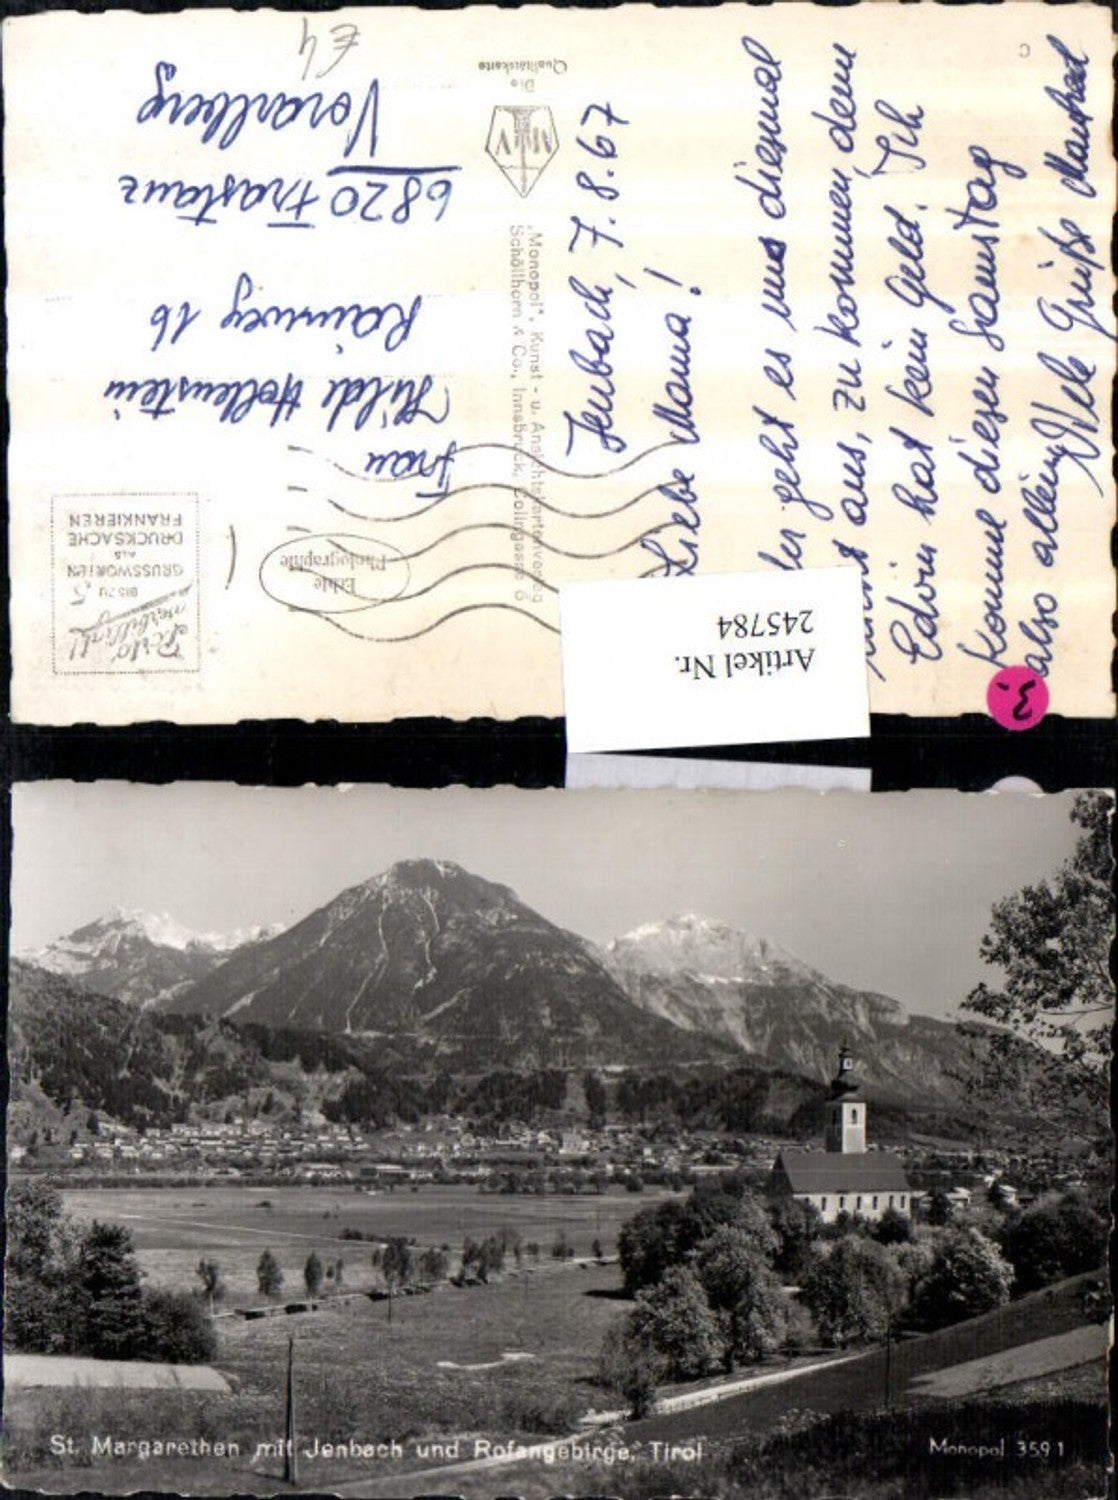 €4
Die
Qualitätskarte
"Monopol", Kunst- u. Ansichtskartenverlag
Schöllhorn & Co., Innsbruck,
Echte
Photographie
BIS ZU 5
GRUSSWORTEN
ALS
DRUCKSACHE
FRANKIEREN
Frau
Hilde Hollenstein
Rainweg 16
6820 Frastanz
Vorarlberg
Jenbach, 7.8.67
Liebe Mama!
geht es uns diesmal
aus, zu kommen, denn
Edwin hat kein Geld. Ich
komme diesen Samstag
also allein. Viele Grüße Manfred
C
Artikel Nr.
245784
3
St. Margarethen mit Jenbach und Rofangebirge, Tirol
Monopol 3591